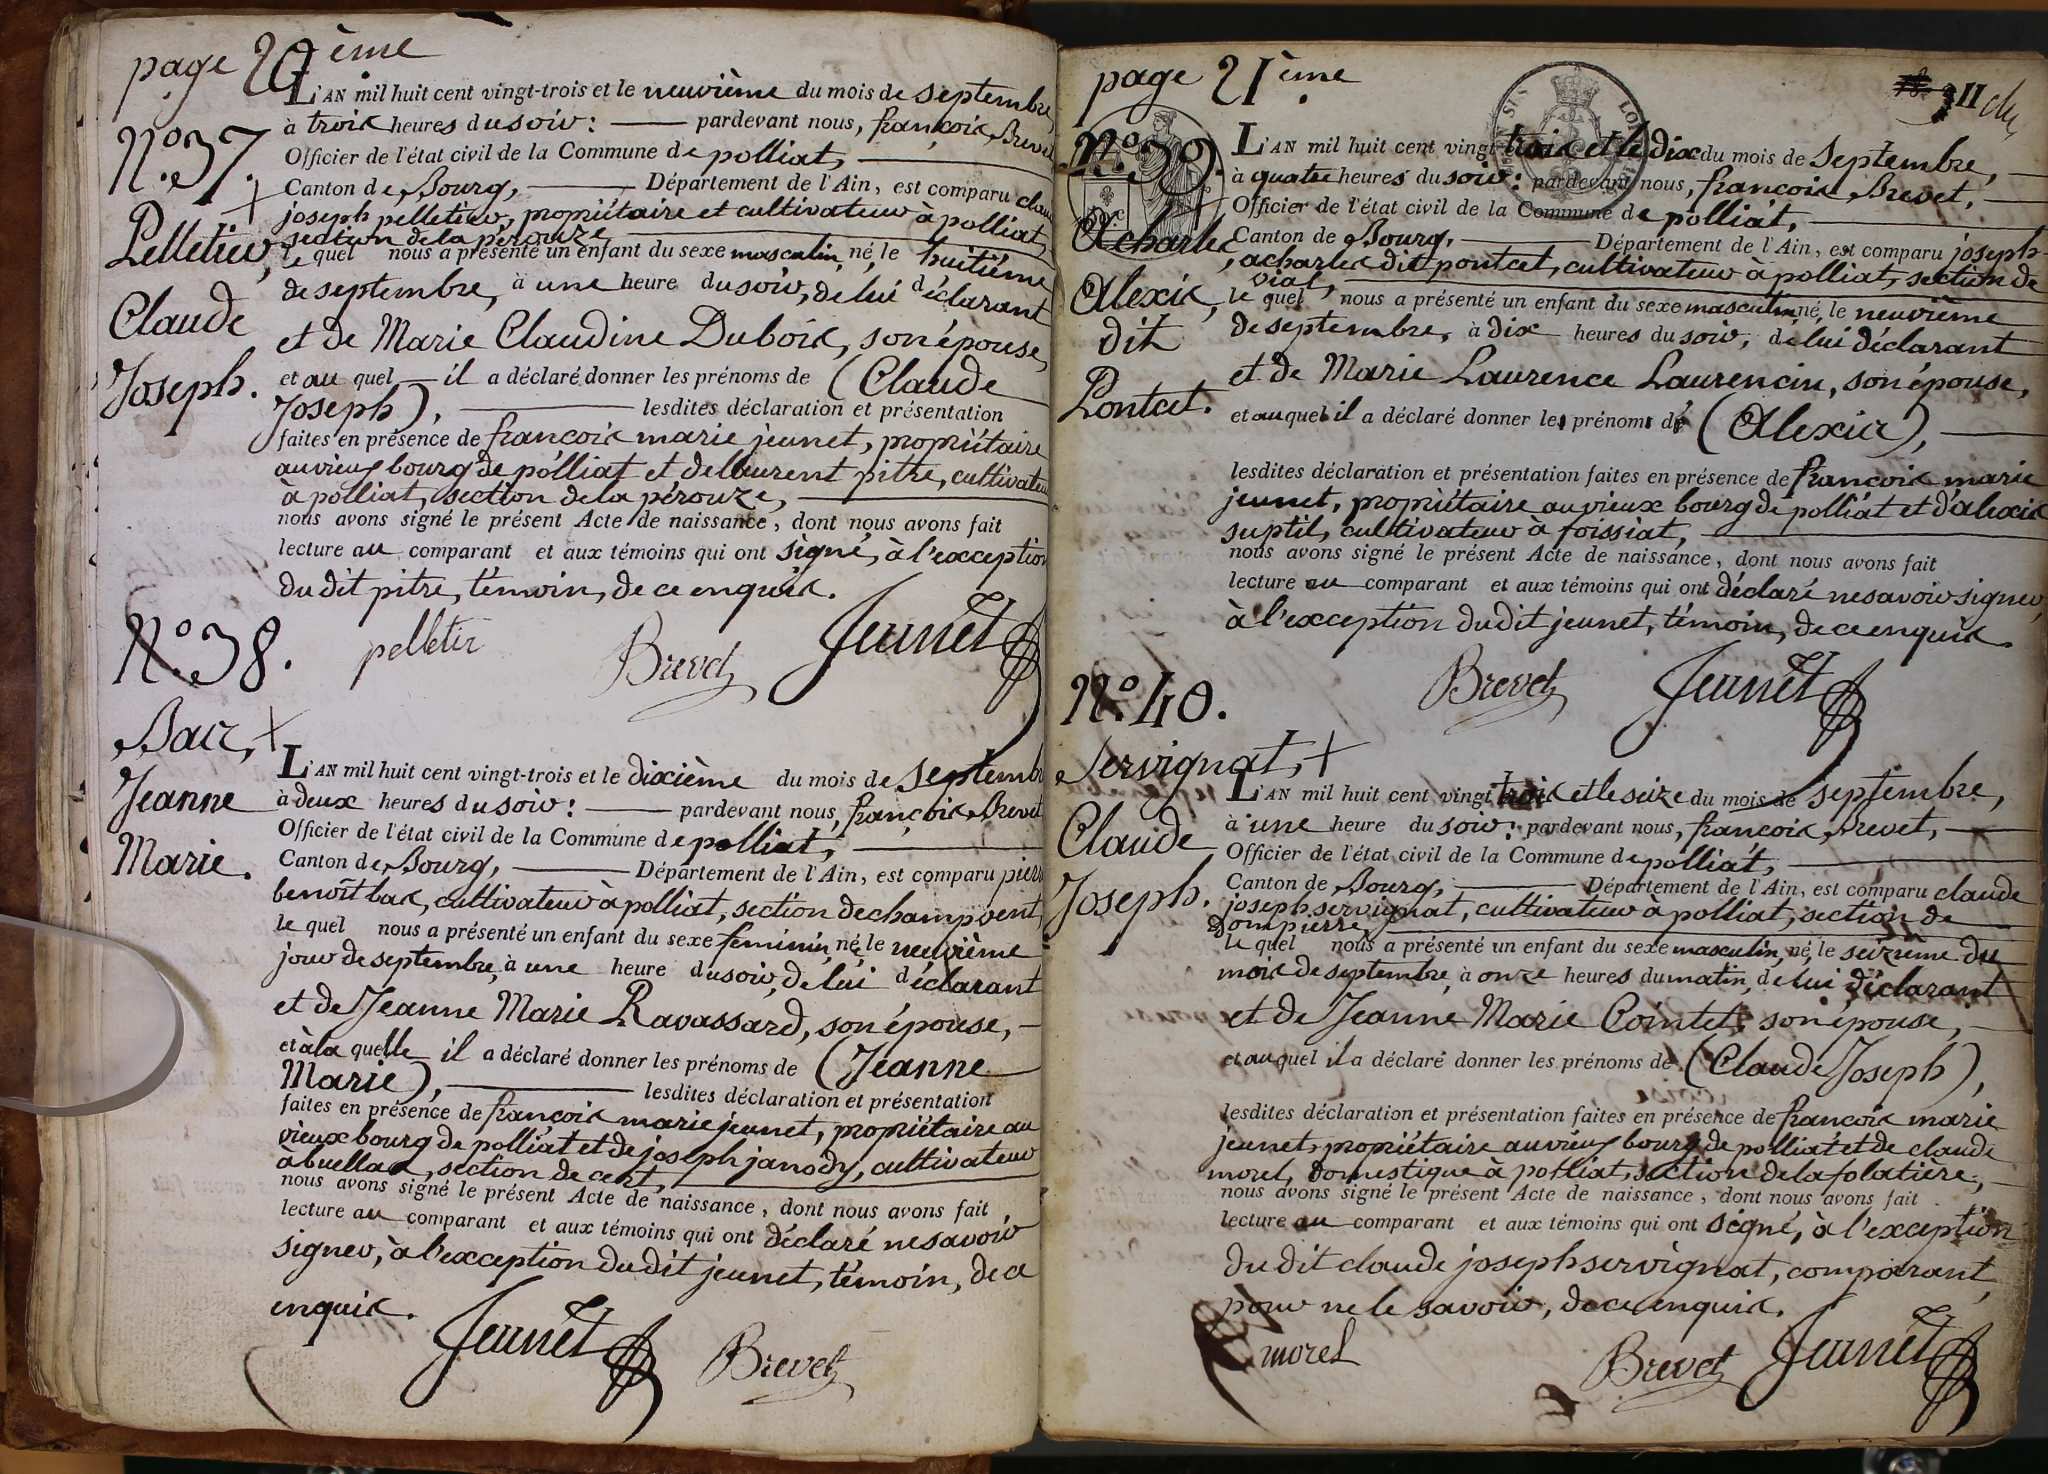 page 20ème
N.º 37.
Pelletier,
Claude
Joseph.
L'AN mil huit cent vingt-trois et le neuvième du mois de septembre,
à trois heures du soir : pardevant nous, françois Brevet
Officier de l'état civil de la Commune de polliat,
Canton de Bourg, Département de l'Ain, est comparu claude
joseph pelletier, propriétaire et cultivateur à polliat,
section de la pérouze
le quel nous a présenté un enfant du sexe masculin, né, le huitième
de septembre, à une heure du soir, de lui déclarant
et de Marie Claudine Dubois, son épouse,
et au quel il a déclaré donner les prénoms de (Claude
Joseph), lesdites déclaration et présentation
faites en présence de françois marie jeunet, propriétaire
au vieux bourg de polliat et de laurent pitre, cultivateur
à polliat, section de la pérouze,
nous avons signé le présent Acte de naissance, dont nous avons fait
lecture au comparant et aux témoins qui ont signé, à l'exception
du dit pitre, témoin, de ce enquis.
pelletier Brevet Jeunet
N.º 38.
Bas,
Jeanne
Marie.
L'AN mil huit cent vingt-trois et le dixième du mois de septembre
à deux heures du soir : pardevant nous, françois Brevet
Officier de l'état civil de la Commune de polliat,
Canton de Bourg, Département de l'Ain, est comparu pierre
benoît bas, cultivateur à polliat, section de champvent,
le quel nous a présenté un enfant du sexe féminin, né le neuvième
jour de septembre, à une heure du soir, de lui déclarant
et de Jeanne Marie Ravassard, son épouse,
et à la quelle il a déclaré donner les prénoms de (Jeanne
Marie), lesdites déclaration et présentation
faites en présence de françois marie jeunet, propriétaire au
vieux bourg de polliat et de joseph janody, cultivateur
à buellas, section de cent,
nous avons signé le présent Acte de naissance, dont nous avons fait
lecture au comparant et aux témoins qui ont déclaré ne savoir
signer, à l'exception du dit jeunet, témoin, de ce
enquis.
Jeunet Brevet
page 21ème
N.º 39.
Acharles
Alexis,
dit
Pontcet.
L'AN mil huit cent vingt trois et le dix du mois de septembre,
à quatre heures du soir : pardevant nous, françois Brevet,
Officier de l'état civil de la Commune de polliat,
Canton de Bourg, Département de l'Ain, est comparu joseph
acharles dit pontcet, cultivateur à polliat, section de
viat,
le quel nous a présenté un enfant du sexe masculin, né, le neuvième
de septembre, à dix heures du soir, de lui déclarant
et de Marie Laurence Laurencin, son épouse,
et au quel il a déclaré donner les prénoms de (Alexis),
lesdites déclaration et présentation faites en présence de françois marie
jeunet, propriétaire au vieux bourg de polliat et d'alexis
suptil, cultivateur à foissiat,
nous avons signé le présent Acte de naissance, dont nous avons fait
lecture au comparant et aux témoins qui ont déclaré ne savoir signer,
à l'exception du dit jeunet, témoin, de ce enquis.
Brevet Jeunet
N.º 40.
Servignat,
Claude
Joseph.
L'AN mil huit cent vingt trois et le seize du mois de septembre,
à une heure du soir : pardevant nous, françois Brevet,
Officier de l'état civil de la Commune de polliat,
Canton de Bourg, Département de l'Ain, est comparu claude
joseph servignat, cultivateur à polliat, section de
dompierre,
le quel nous a présenté un enfant du sexe masculin, né, le seizième du
mois de septembre, à onze heures du matin, de lui déclarant
et de Jeanne Marie Cointet, son épouse,
et au quel il a déclaré donner les prénoms de (Claude Joseph),
lesdites déclaration et présentation faites en présence de françois marie
jeunet, propriétaire au vieux bourg de polliat et de claude
morel, domestique à polliat, section de la folatière,
nous avons signé le présent Acte de naissance, dont nous avons fait
lecture au comparant et aux témoins qui ont signé, à l'exception
du dit claude joseph servignat, comparant,
pour ne le savoir, de ce enquis.
morel Brevet Jeunet